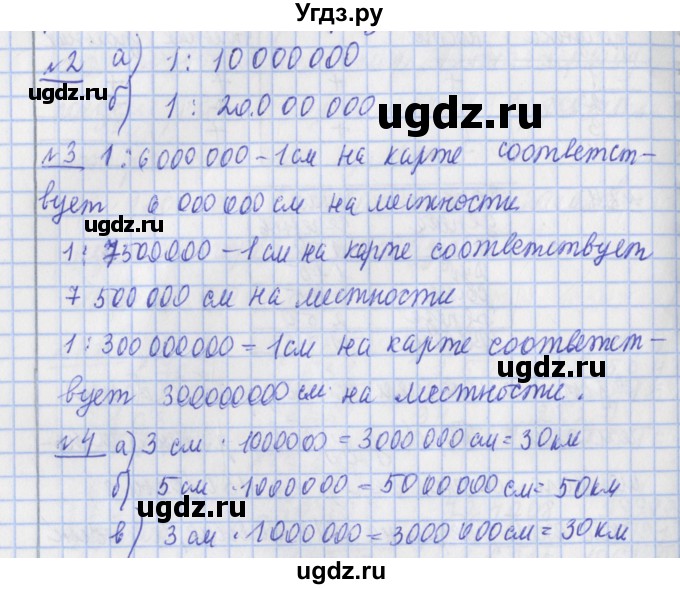 Угдз.ру
№2 а) 1 : 10 000 000
ugdz.ru
б) 1 : 20.000 000
ugdz.ru
№3 1 : 6 000 000 – 1 см на карте соответст-
вует 6 000 000 см на местности
ugdz.ru
1 : 7500000 – 1 см на карте соответствует
7 500 000 см на местности
1 : 300 000 000 – 1 см на карте соответст-
ugdz.ru
вует 300000000 см на местности.
№4 а) 3 см · 1000000 = 3000 000 см = 30 км
б) 5 см · 1000000 = 5000000 см = 50 км
ugdz.ru
в) 3 см · 1000000 = 3000 000 см = 30 км
ugdz.ru
ugdz.ru